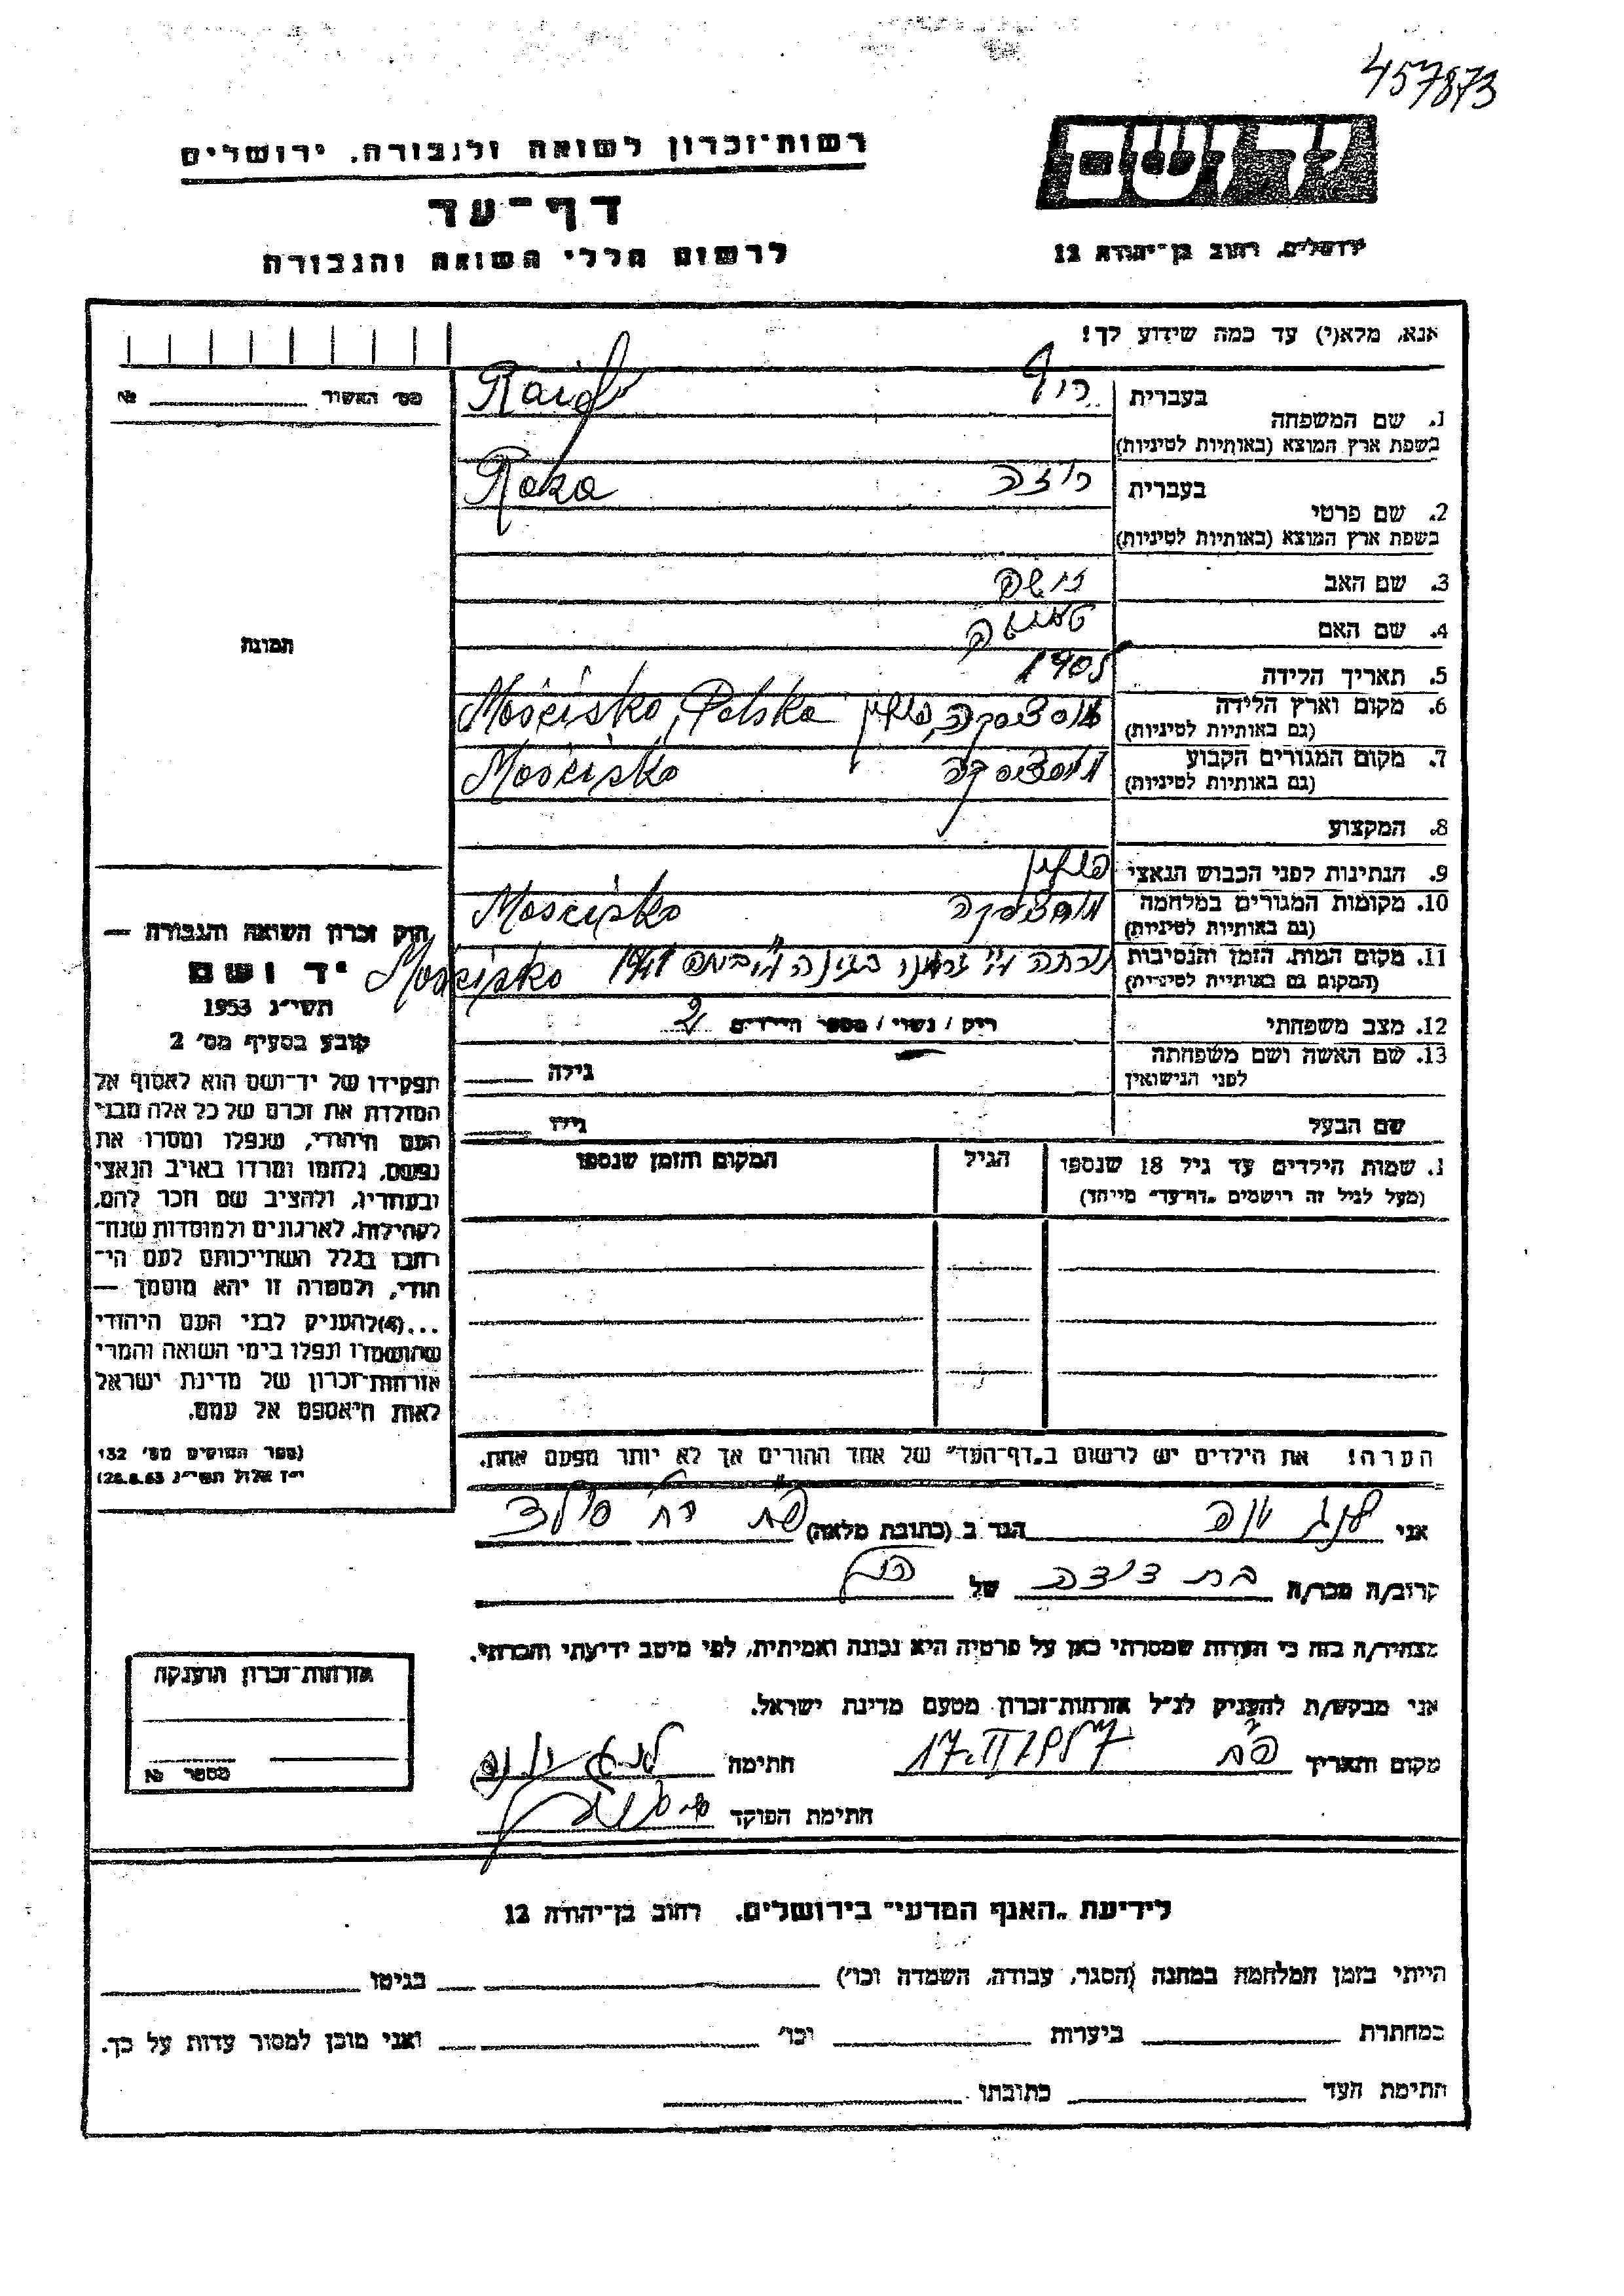 457873
רשות־זכרון לשואה ולגבורה, ירושלים
דף־עד
לרשום חללי השואה והגבורה
יד ושם
ירושלים, רחוב בן־יהודה 12
אנא, מלא(י) עד כמה שידוע לך!
מס׳ האשור № ______
1. שם המשפחה בעברית רייף
בשפת ארץ המוצא (באותיות לטיניות) Raif
2. שם פרטי בעברית רוזה
בשפת ארץ המוצא (באותיות לטיניות) Roza
3. שם האב
4. שם האם
5. תאריך הלידה 1905
6. מקום וארץ הלידה (גם באותיות לטיניות) מוסציסקה, פולין Mościska, Polska
7. מקום המגורים הקבוע (גם באותיות לטיניות) מוסציסקה Mościska
8. המקצוע
9. הנתינות לפני הכבוש הנאצי פולין
10. מקומות המגורים במלחמה (גם באותיות לטיניות) מוסציסקה Mościska
11. מקום המות, הזמן והנסיבות (המקום גם באותיות לטיניות) 1941 Mościska
12. מצב משפחתי רוק / נשוי / מספר הילדים 2
13. שם האשה ושם משפחתה לפני הנישואין גילה ____
שם הבעל גילו ____
תמונה
חוק זכרון השואה והגבורה —
יד ושם
תשי״ג 1953
קובע בסעיף מס׳ 2
תפקידו של יד־ושם הוא לאסוף אל
המולדת את זכרם של כל אלה מבני
העם היהודי, שנפלו ומסרו את
נפשם, נלחמו ומרדו באויב הנאצי
ובעוזריו, ולהציב שם וזכר להם,
לקהילות, לארגונים ולמוסדות שנח־
רבו בגלל השתייכותם לעם הי־
הודי, ולמטרה זו יהא מוסמך —
...(4) להעניק לבני העם היהודי
שהושמדו ונפלו בימי השואה והמרי
אזרחות־זכרון של מדינת ישראל
לאות היאספם אל עמם.
(ספר החוקים מס׳ 132
י״ז אלול תשי״ג 28.8.53)
1. שמות הילדים עד גיל 18 שנספו הגיל המקום והזמן שנספו
(מעל לגיל זה רושמים „דף־עד״ מיוחד)
הערה! את הילדים יש לרשום ב„דף־העד״ של אחד ההורים אך לא יותר מפעם אחת.
אני לנג יונה הגר ב (כתובת מלאה) פ״ת רח׳
קרוב/ה מכר/ה בת דודה של
מצהיר/ה בזה כי העדות שמסרתי כאן על פרטיה היא נכונה ואמיתית, לפי מיטב ידיעתי והכרתי.
אני מבקש/ת להעניק לנ״ל אזרחות־זכרון מטעם מדינת ישראל.
מקום ותאריך פ״ת 17.II 1957 חתימה לנג יונה
חתימת הפוקד
אזרחות־זכרון הוענקה
מספר №
לידיעת „האגף המדעי״ בירושלים, רחוב בן־יהודה 12
הייתי בזמן המלחמה במחנה (הסגר, עבודה, השמדה וכו׳) ______ בגיטו ______
במחתרת ______ ביערות ______ וכו׳ ______ ואני מוכן למסור עדות על כך.
חתימת העד ______ כתובתו ______